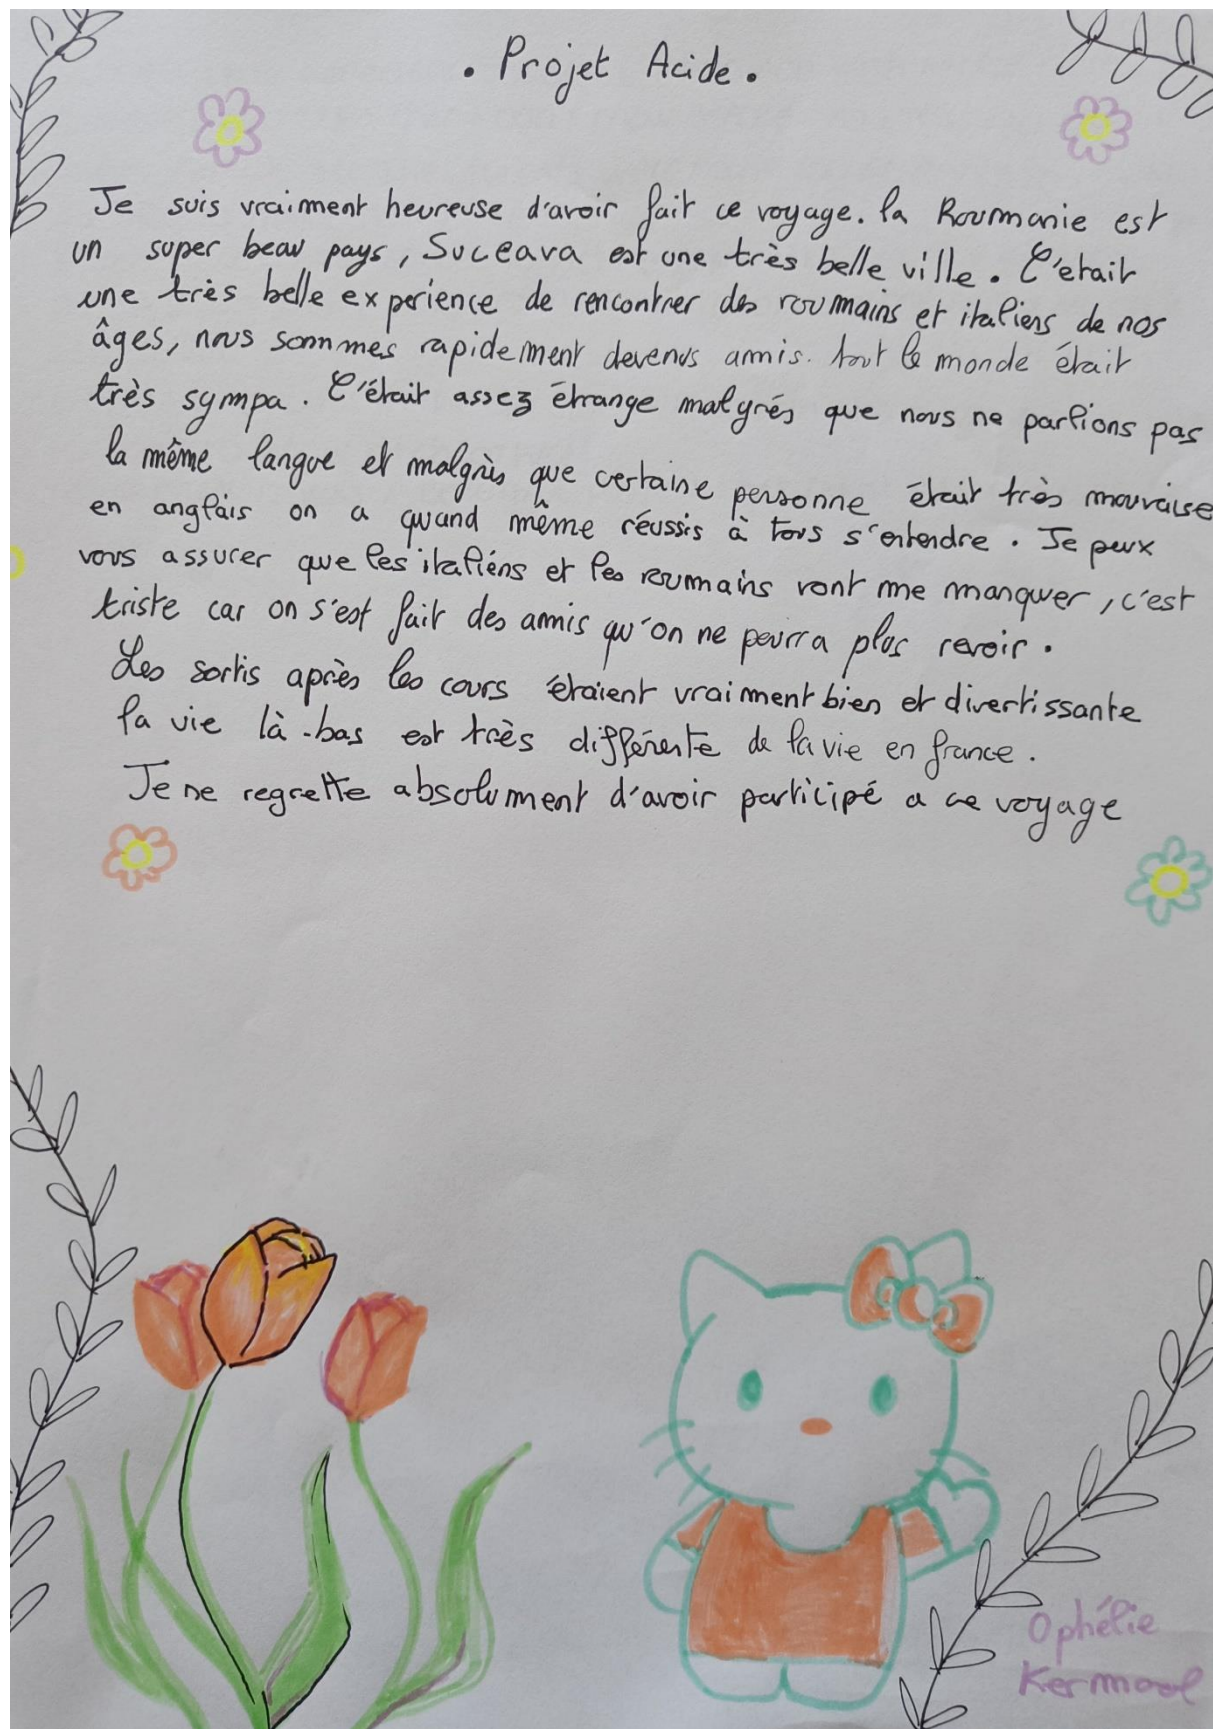 . Projet Acide .
Je suis vraiment heureuse d'avoir fait ce voyage. la Roumanie est
un super beau pays, Suceava est une très belle ville. C'etait
une très belle experience de rencontrer des roumains et italiens de nos
âges, nous sommes rapidement devenus amis. tout le monde était
très sympa. C'était assez étrange malgrés que nous ne parlions pas
la même langue et malgrès que certaine personne était très mauvaise
en anglais on a quand même réussis à tous s'entendre. Je peux
vous assurer que les italiéns et les roumains vont me manquer, c'est
triste car on s'est fait des amis qu'on ne pourra plus revoir.
Les sortis après les cours étaient vraiment bien et divertissante
la vie là-bas est très différente de la vie en france.
Je ne regrette absolument d'avoir participé a ce voyage
Ophélie